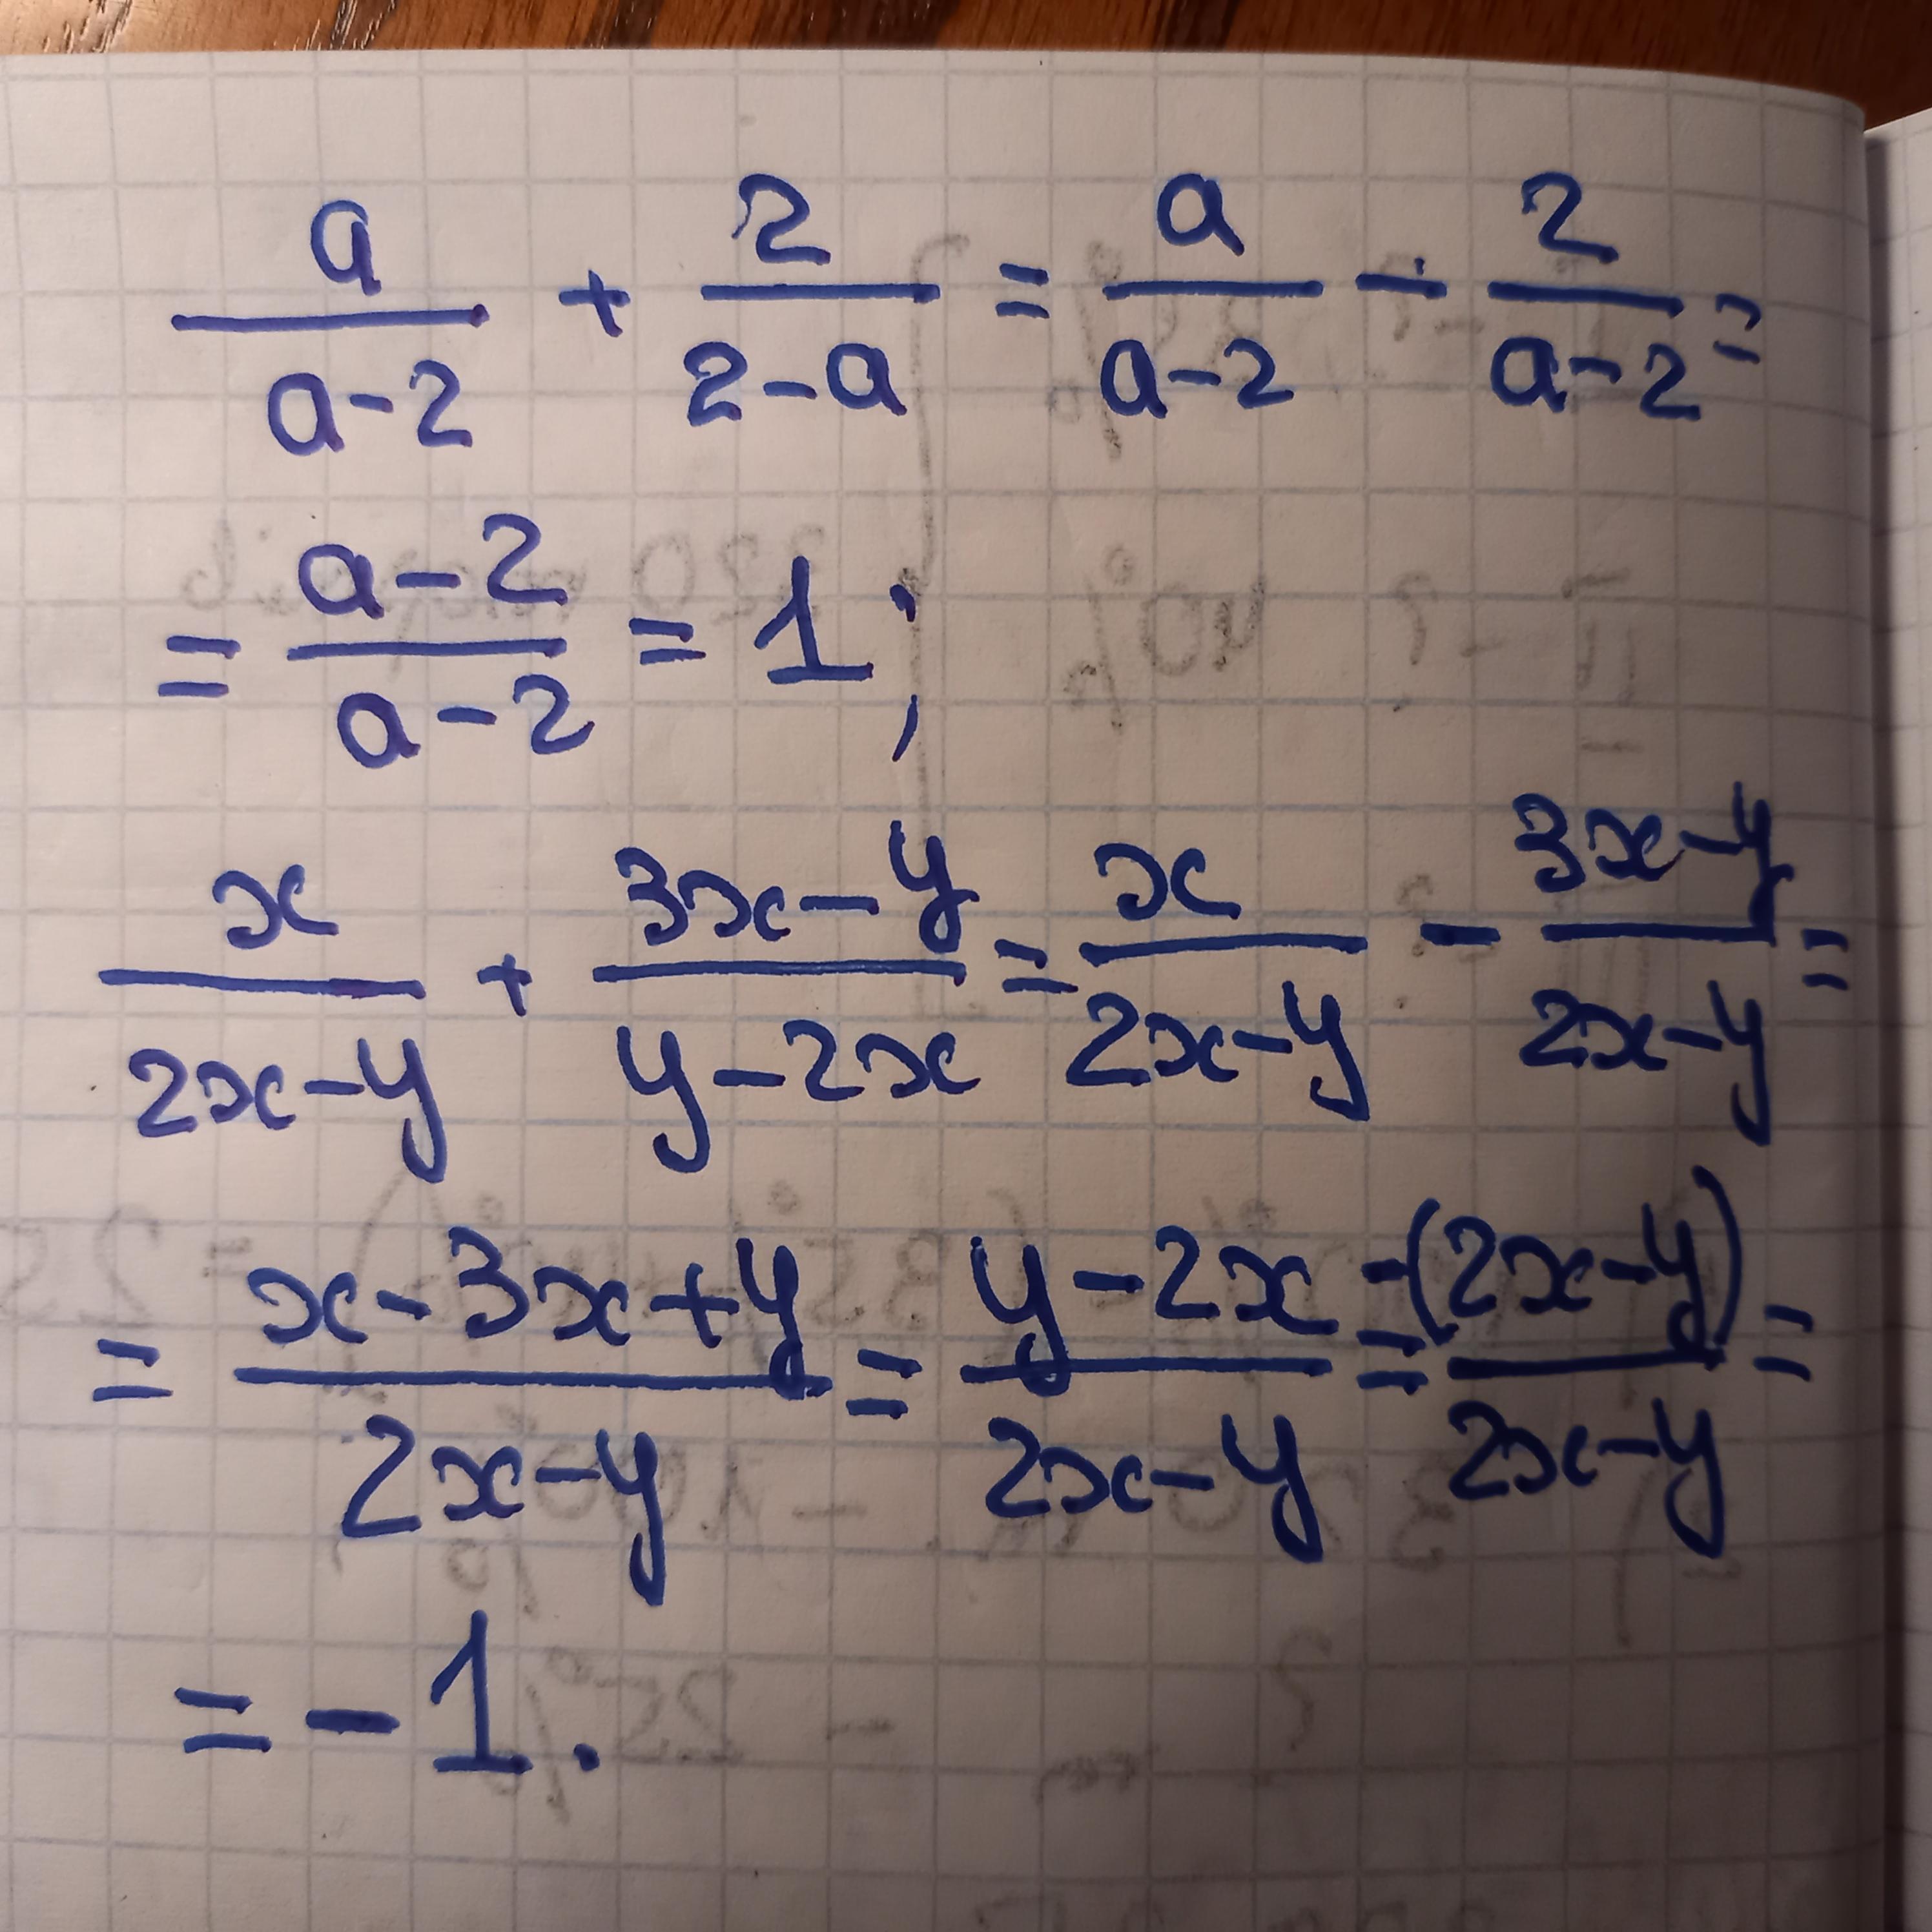 a/(a-2) + 2/(2-a) = a/(a-2) - 2/(a-2) =
= (a-2)/(a-2) = 1;
x/(2x-y) + (3x-y)/(y-2x) = x/(2x-y) - (3x-y)/(2x-y) =
= (x-3x+y)/(2x-y) = (y-2x)/(2x-y) = -(2x-y)/(2x-y) =
= -1.